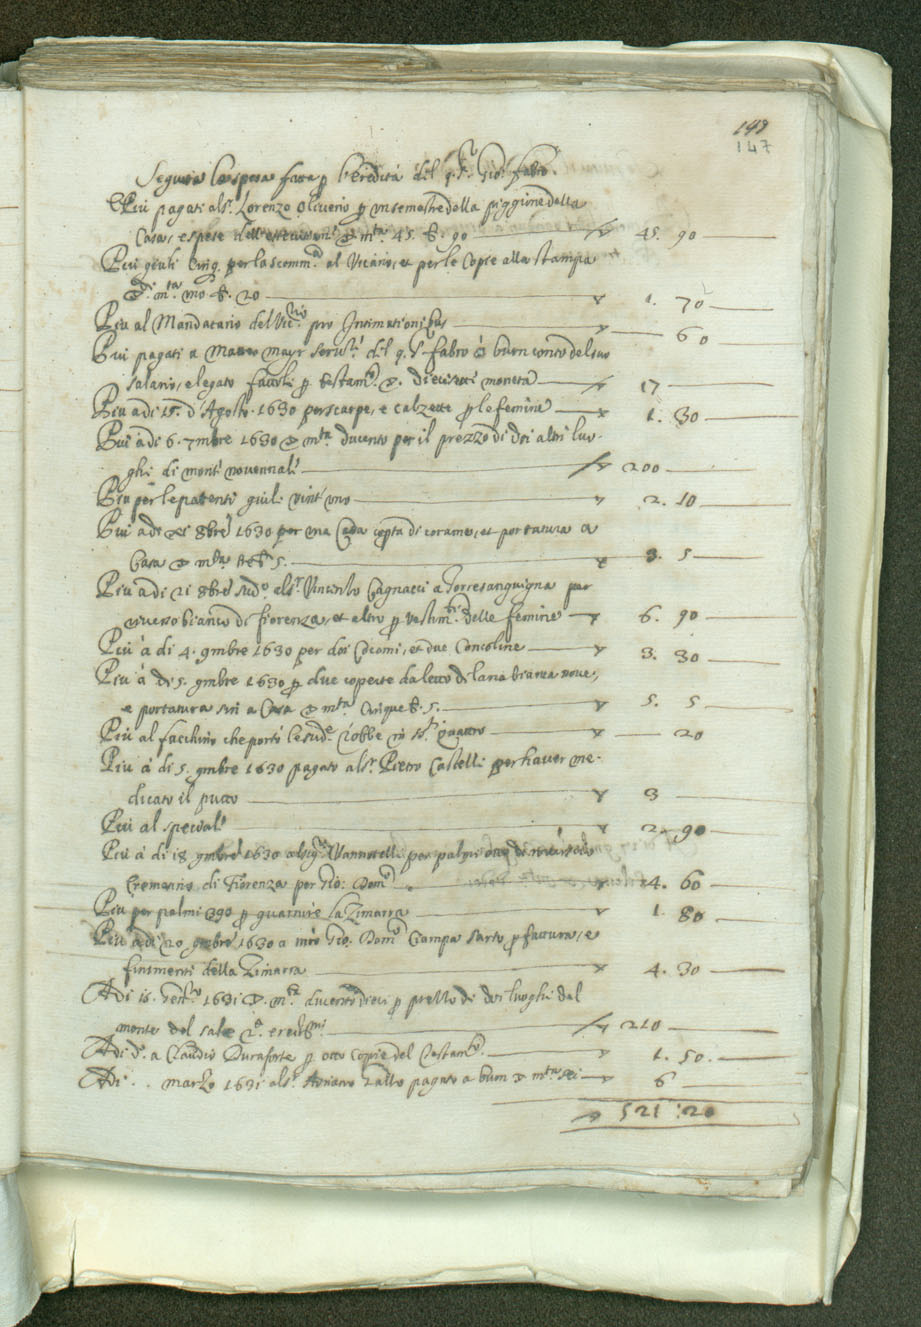 149
147
Segue la spesa fatta p l'Eredità del q. Sr. Gio: fabro.
Più pagati al Sr. Lorenzo Oliverio p un semestre della piggione della
Casa, e spese dell'essecutione mta. 45. b. 90 45. 90
Più giuli Cinq. per la scomm.ca al Vicario, et per le Copie alla stampa
mta. uno b. 20 1. 70
Più al Mandatario del Vic.rio pro Intimationibus 60
Più pagati a Matteo mayr servit. del q. Sr. fabro à buon conto del suo
salario, e legato fattoli p testam.to dieciseti moneta 17
Più adi 15. d'Agosto. 1630 per scarpe, e calzette p le femine 1. 30
Più adi 6. 7mbre 1630 mta. ducento per il prezzo di doi altri luo-
ghi di monti novennali 200
Più per le patenti giuli vint'uno 2. 10
Più adi 8bre 1630 per una Cassa coperta di corame, et portatura a
Casa mta. tre b. 5. 3. 5
Più adi 21 8bre sudo. al Sr. Vincenzo Cagnacci a Torresanguigna per
rovverso bianco di fiorenza, et altro p vestim.ti delle femine 6. 90
Più à di 4. 9mbre 1630 per doi Cocomi, et due Concoline 3. 30
Più à di 5. 9mbre 1630 p due coperte da letto di lana bianca nove,
e portatura sin a Casa mta. Cinque b. 5. 5. 5
Più al facchino che portò le sude. robbe 20
Più à di 5. 9mbre 1630 pagato al Sr. Pietro Castelli per haver me-
dicato il putto 3
Più al spetiali 2. 90
Più à di 18 9mbre 1630 al Sigr. Vannucelli per palmi
Cremesino di Fiorenza per Gio: Dom.co 4. 60
Più per palmi p guarnire la Zimarra 1. 80
Più adi 20 9mbre 1630 a mro Gio. Dom.co Ciampa Sarto p fattura, e
finimenti della Zimarra 4. 30
Adi 16. Genro. 1631 mta. ducento dieci p prezzo di doi luoghi del
monte del sale 2a. erett.ne 210
Adi do. a Claudio Duraforte p otto copie del Testam.to 1. 50.
Adi . . Marzo 1631 al Sr. Adriano pagato a buon mta. sei 6
521 : 20